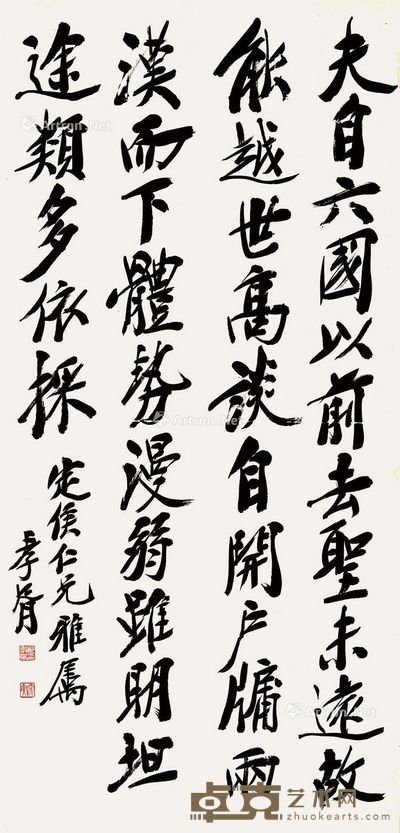 夫自六國以前去聖未遠故
能越世高談自開戶牖兩
漢而下體勢漫弱雖明坦
途類多依採
定侯仁兄雅属
孝胥
Artron.Net
卓克艺术网
www.zhuokearts.com